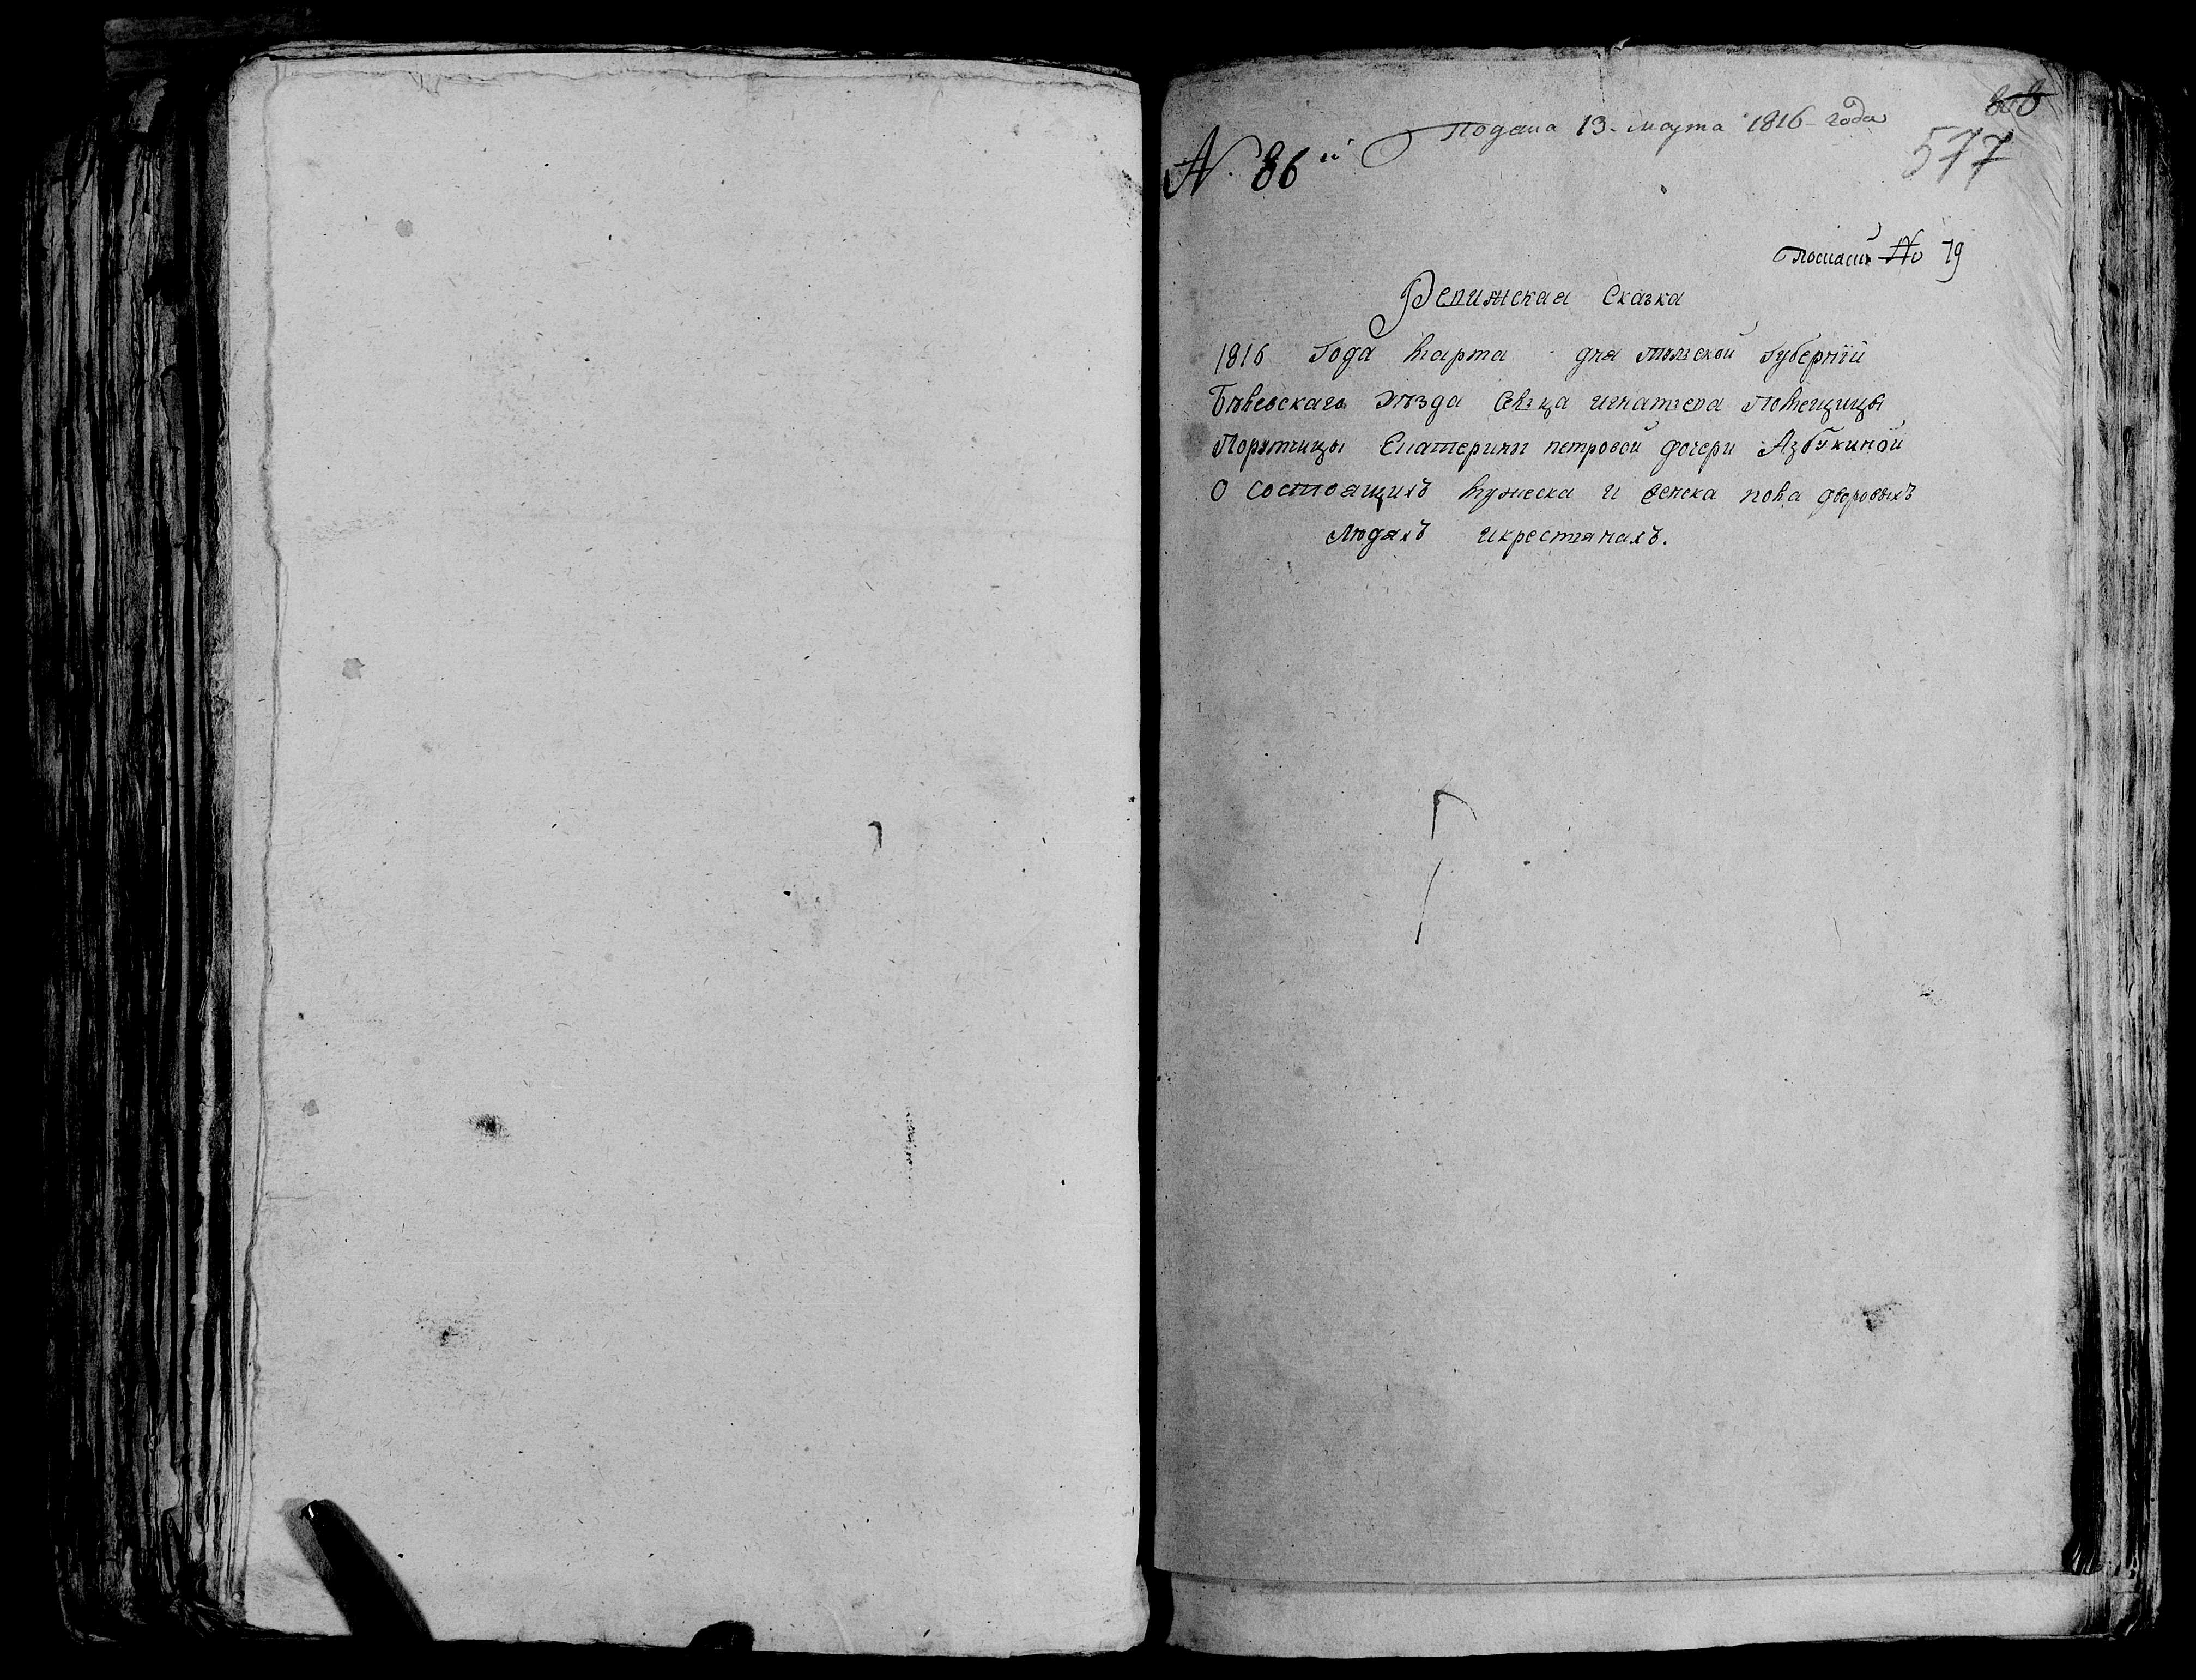 Подана 13. марта 1816 года
N. 86й
577
No 19
Ревижская Сказка
1816 Года марта дня тульской Губернїи
Белевскаго уезда Сельца игнатьева Помещицы
Порутчицы Екатерины петровой дочери Азбукиной
О состоящихъ мужеска и женска пола дворовыхъ
людяхъ икрестьянахъ.